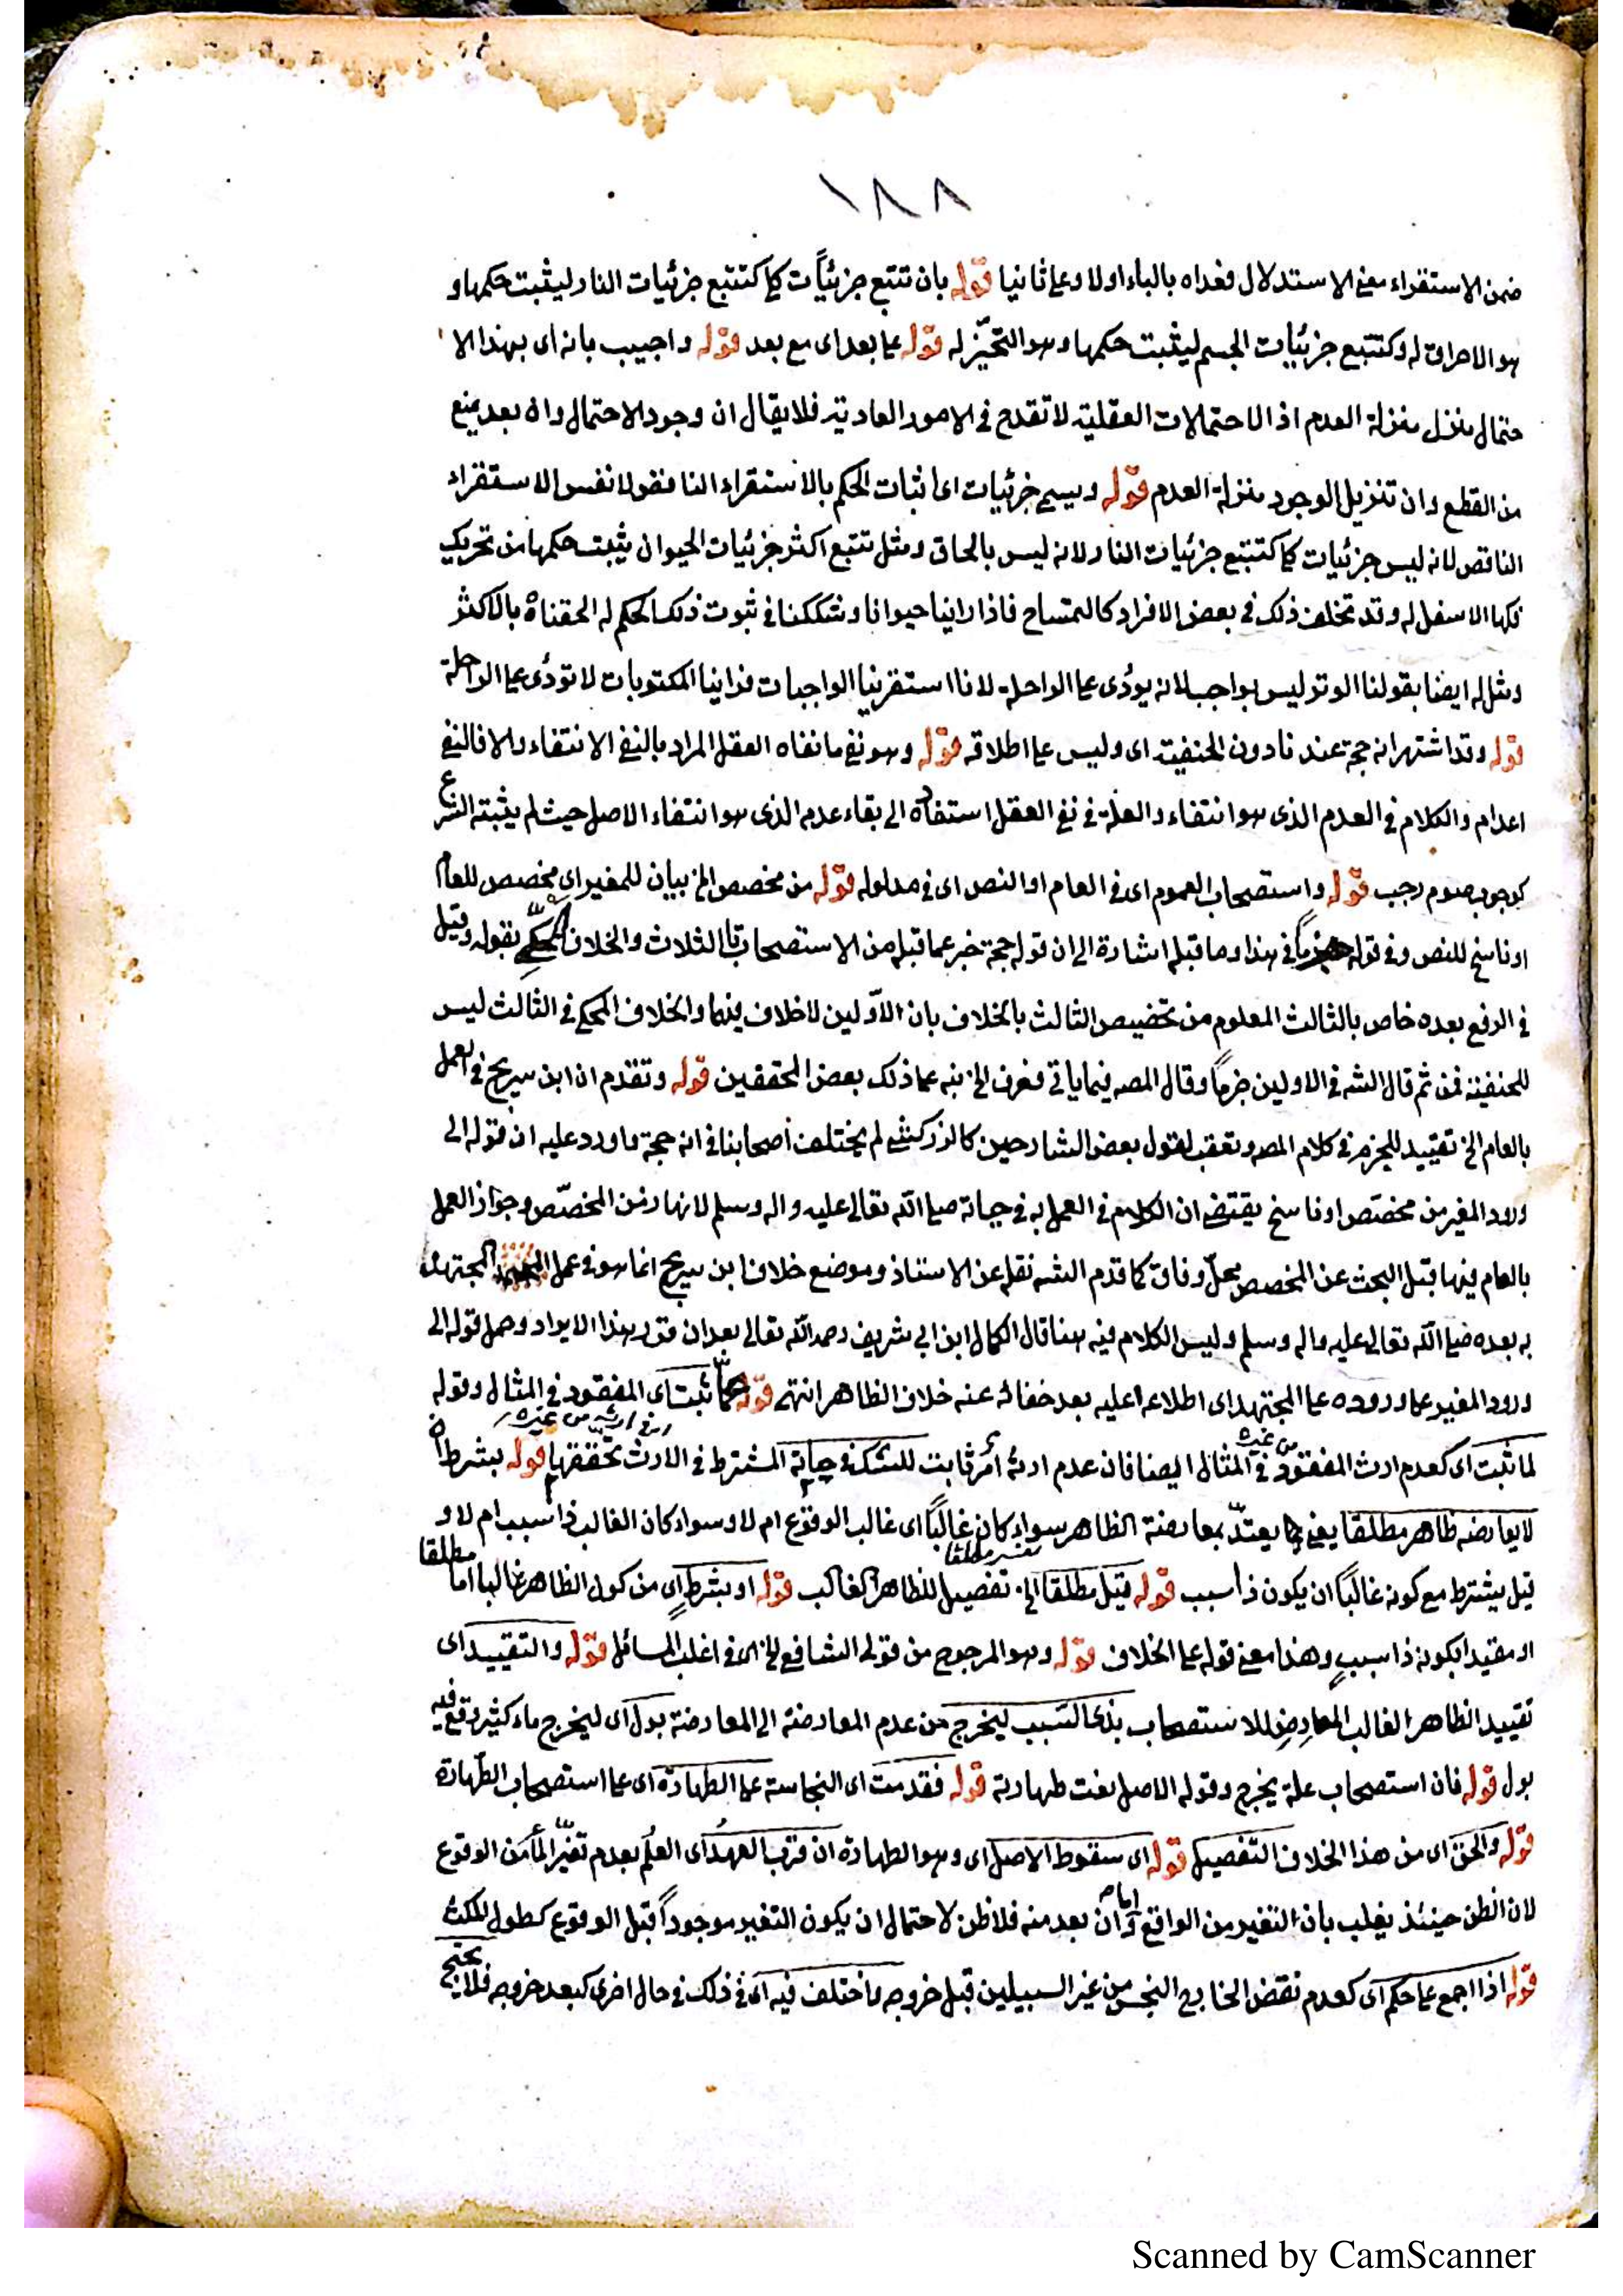 ١٨٨
ضمن الاستقراء معنى الاستدلال فعداه بالباء اولا وعلى ثانيا قوله بان تتبع جزئيات كلي كتتبع جزئيات النار ليثبت حكمها و
هو الاحراق له وكتتبع جزئيات الجسم ليثبت حكمها وهو التحيّز له قوله على بعد اى مع بعد قوله واجيب بانه اى بهذا الا
حتمال منزل منزلة العدم اذ الاحتمالات العقلية لا تقدح فى الامور العادية فلا يقال ان وجود الاحتمال وان بعد يمنع
من القطع وان تنزيل الوجود منزلة العدم قوله ويسمى جزئيات اى اثبات الحكم بالاستقراء الناقص لا نفس الاستقراء
الناقص لانه ليس جزئيات كلي كتتبع جزئيات النار لانه ليس بالحاق ومثل تتبع اكثر جزئيات الحيوان يثبت حكمها من تحريك
فكها الاسفل له وقد تخلف ذلك فى بعض الافراد كالتمساح فاذا راينا حيوانا وشككنا فى ثبوت ذلك الحكم له الحقناه بالاكثر
ومثل له ايضا بقولنا الوتر ليس بواجب لانه يودى على الراحلة لانا استقرينا الواجبات فراينا المكتوبات لا تودى على الراحلة
قوله وقد اشتهر انه حجة عندنا دون الحنفية اى وليس على اطلاقه قوله وهو نفى ما نفاه العقل المراد بالنفى الانتفاء والا فالنفى
اعدام والكلام فى العدم الذى هو انتفاء والعلة فى نفى العقل استفاده الى بقاء عدمه الذى هو انتفاء الاصل حيث لم يثبته الشرع
كوجوب صوم رجب قوله واستصحاب العموم اى فى العام او النص اى فى مدلوله قوله من مخصص الخ بيان للمغير اى مخصص للعام
او ناسخ للنص وفى قوله جزماً فى هذا وما قبله اشارة الى ان قوله حجة خبر عما قبله من الاستصحابات الثلاث والخلاف المحكي بقوله وقيل
فى الرفع بعده خاص بالثالث المعلوم من تخصيص الثالث بالخلاف بان الأولين لا خلاف فيهما والخلاف المحكي فى الثالث ليس
للحنفية فمن ثم قال الشه فى الاولين جزماً وقال المصه فيما ياتى فعرف الخ نبه على ذلك بعض المحققين قوله وتقدم ان ابن سريج فى العمل
بالعام الخ تقييد للجزم فى كلام المصه وتعقب لقول بعض الشارحين كالزركشى لم يختلف أصحابنا فى انه حجة واورد عليه ان قوله الى
ورود المغير من مخصّص او ناسخ يقتضى ان الكلام فى العمل به فى حياته صلى الله تعالى عليه واله وسلم لانها زمن المخصّص وجواز العمل
بالعام فيها قبل البحث عن المخصص محلّ وفاق كما قدم الشه نقله عن الاستاذ وموضع خلاف ابن سريج انما هو فى عمل المجتهد
به بعده صلى الله تعالى عليه واله وسلم وليس الكلام فيه هنا قال الكمال ابن ابى شريف رحمه الله تعالى بعد ان قرر هذا الايراد وحمل قوله الى
ورود المغير على وروده على المجتهد اى اطلاعه عليه بعد خفائه عنه خلاف الظاهر انتهى قوله ثبت اى المفقود فى المثال وقوله
لما ثبت اى كعدم ارث المفقود من غيره فى المثال ايضا فان عدم ارثه أمر ثابت للشك فى حياته المشترط فى الارث تحققها قوله بشرط ان
لا يعارضه ظاهر مطلقا يعنى يعتدّ بمعارضة الظاهر سواء كان غالباً اى غالب الوقوع ام لا وسواء كان الغالب ذا سبب ام لا و
قيل يشترط مع كونه غالباً ان يكون ذا سبب قوله قيل مطلقا الخ تفصيل للظاهر الغالب قوله او بشرط اي من كون الظاهر غالبا اما مطلقا
او مقيدا بكونه ذا سببٍ وهذا معنى قوله على الخلاف قوله وهو المرجوح من قولى الشافعى الخ اى فى اغلب المسائل قوله والتقييد اى
تقييد الظاهر الغالب المعارِضِ للاستصحاب بذى السّبب ليخرج من عدم المعارضة الى المعارضة بول اى ليخرج ماء كثير وقع فيه
بول قوله فان استصحاب علة يخرج وقوله الاصل نعت طهارته قوله فقدمت اى النجاسة على الطهارة اى على استصحاب الطّهارة
قوله والحق اى من هذا الخلاف التفصيل قوله اى سقوط الاصل اى وهو الطهارة ان قرب العهد اى العلم بعدم تغيّر المأمن الوقوع
لان الظن حينئذ يغلب بان التغير من الواقع وان بعد منه فلا ظن لاحتمال ان يكون التغير موجوداً قبل الوقوع كطول المكث
قوله اذا اجمع على حكم اى كعدم نقض الخارج النجس من غير السبيلين قبل خروجه واختلف فيه اى فى ذلك فى حال اخرى كبعد خروجه فلا يحتج
Scanned by CamScanner